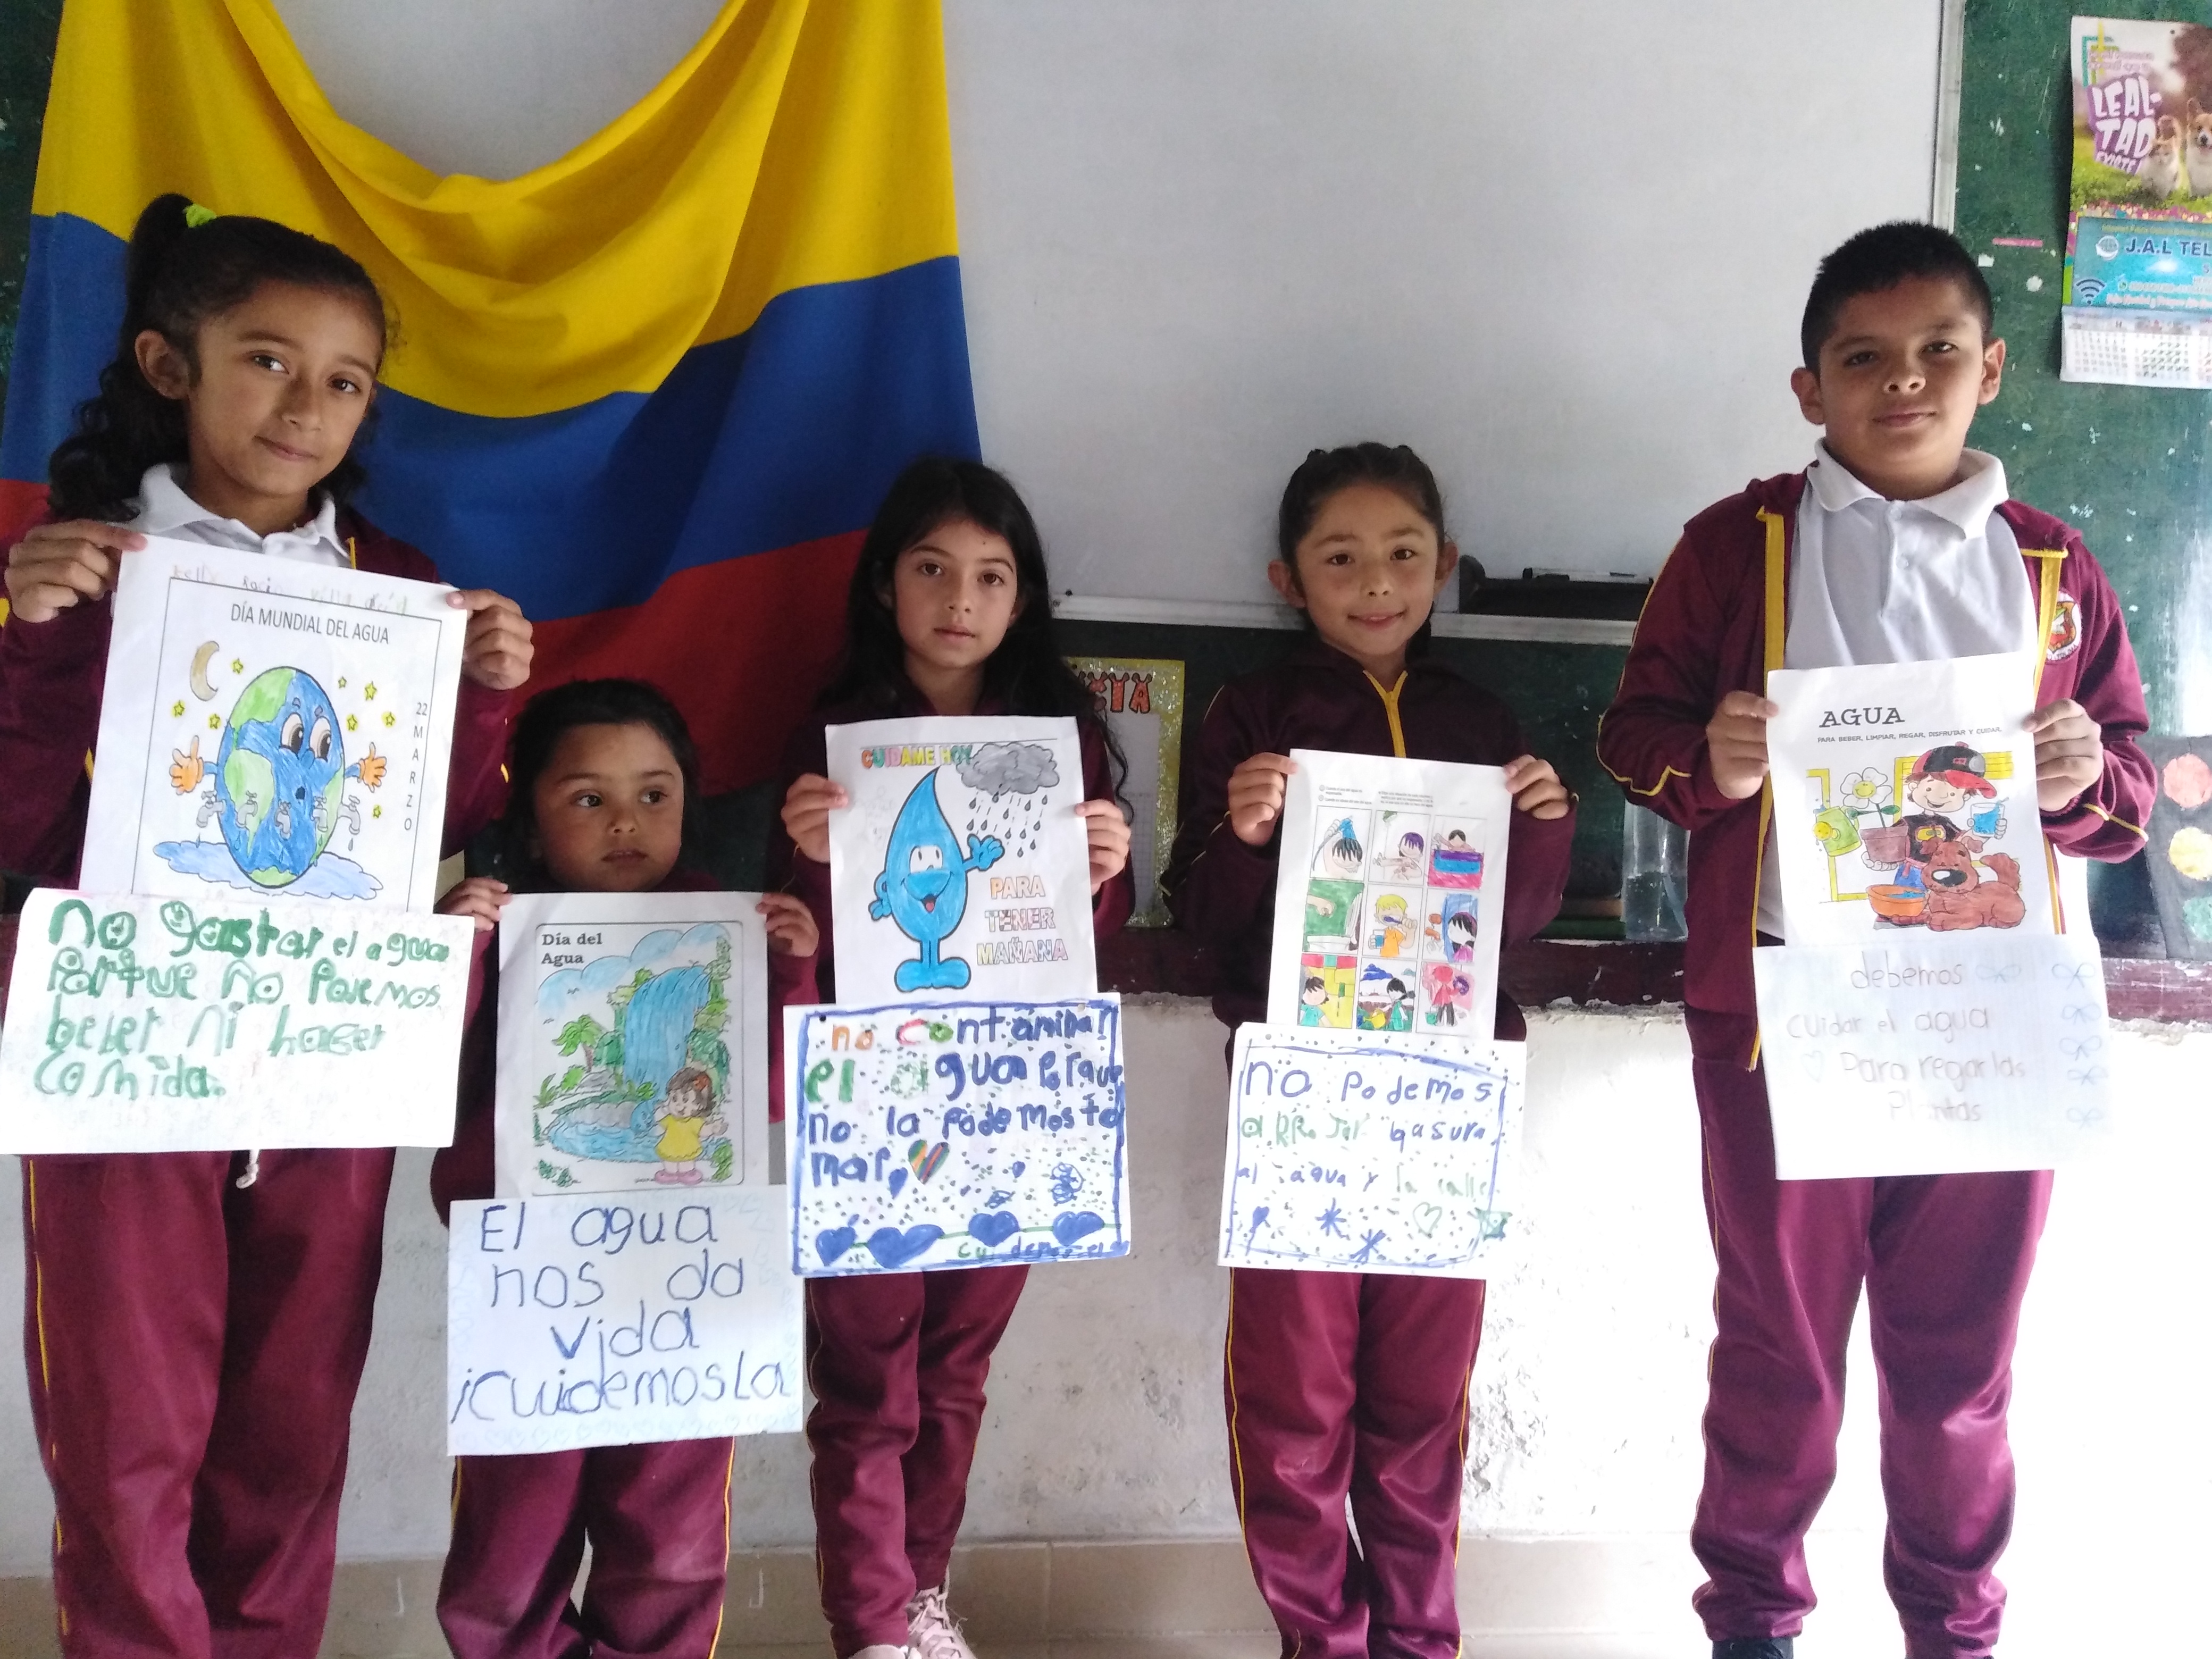 DÍA MUNDIAL DEL AGUA
22 MARZO
no gastar el agua
Porque no Podemos
beber ni hacer
comida.
Día del
Agua
El agua
nos da
vida
¡CuidemosLa
CUIDAME HOY
PARA
TENER
MAÑANA
no contaminar
el agua Porque
no la Podemos to
mar,
no Podemos
arrojar basura
al agua y la calle
AGUA
PARA BEBER, LIMPIAR, REGAR, DISFRUTAR Y CUIDAR.
debemos
cuidar el agua
Para regar las
Plantas
LEAL-
TAD
J.A.L TEL